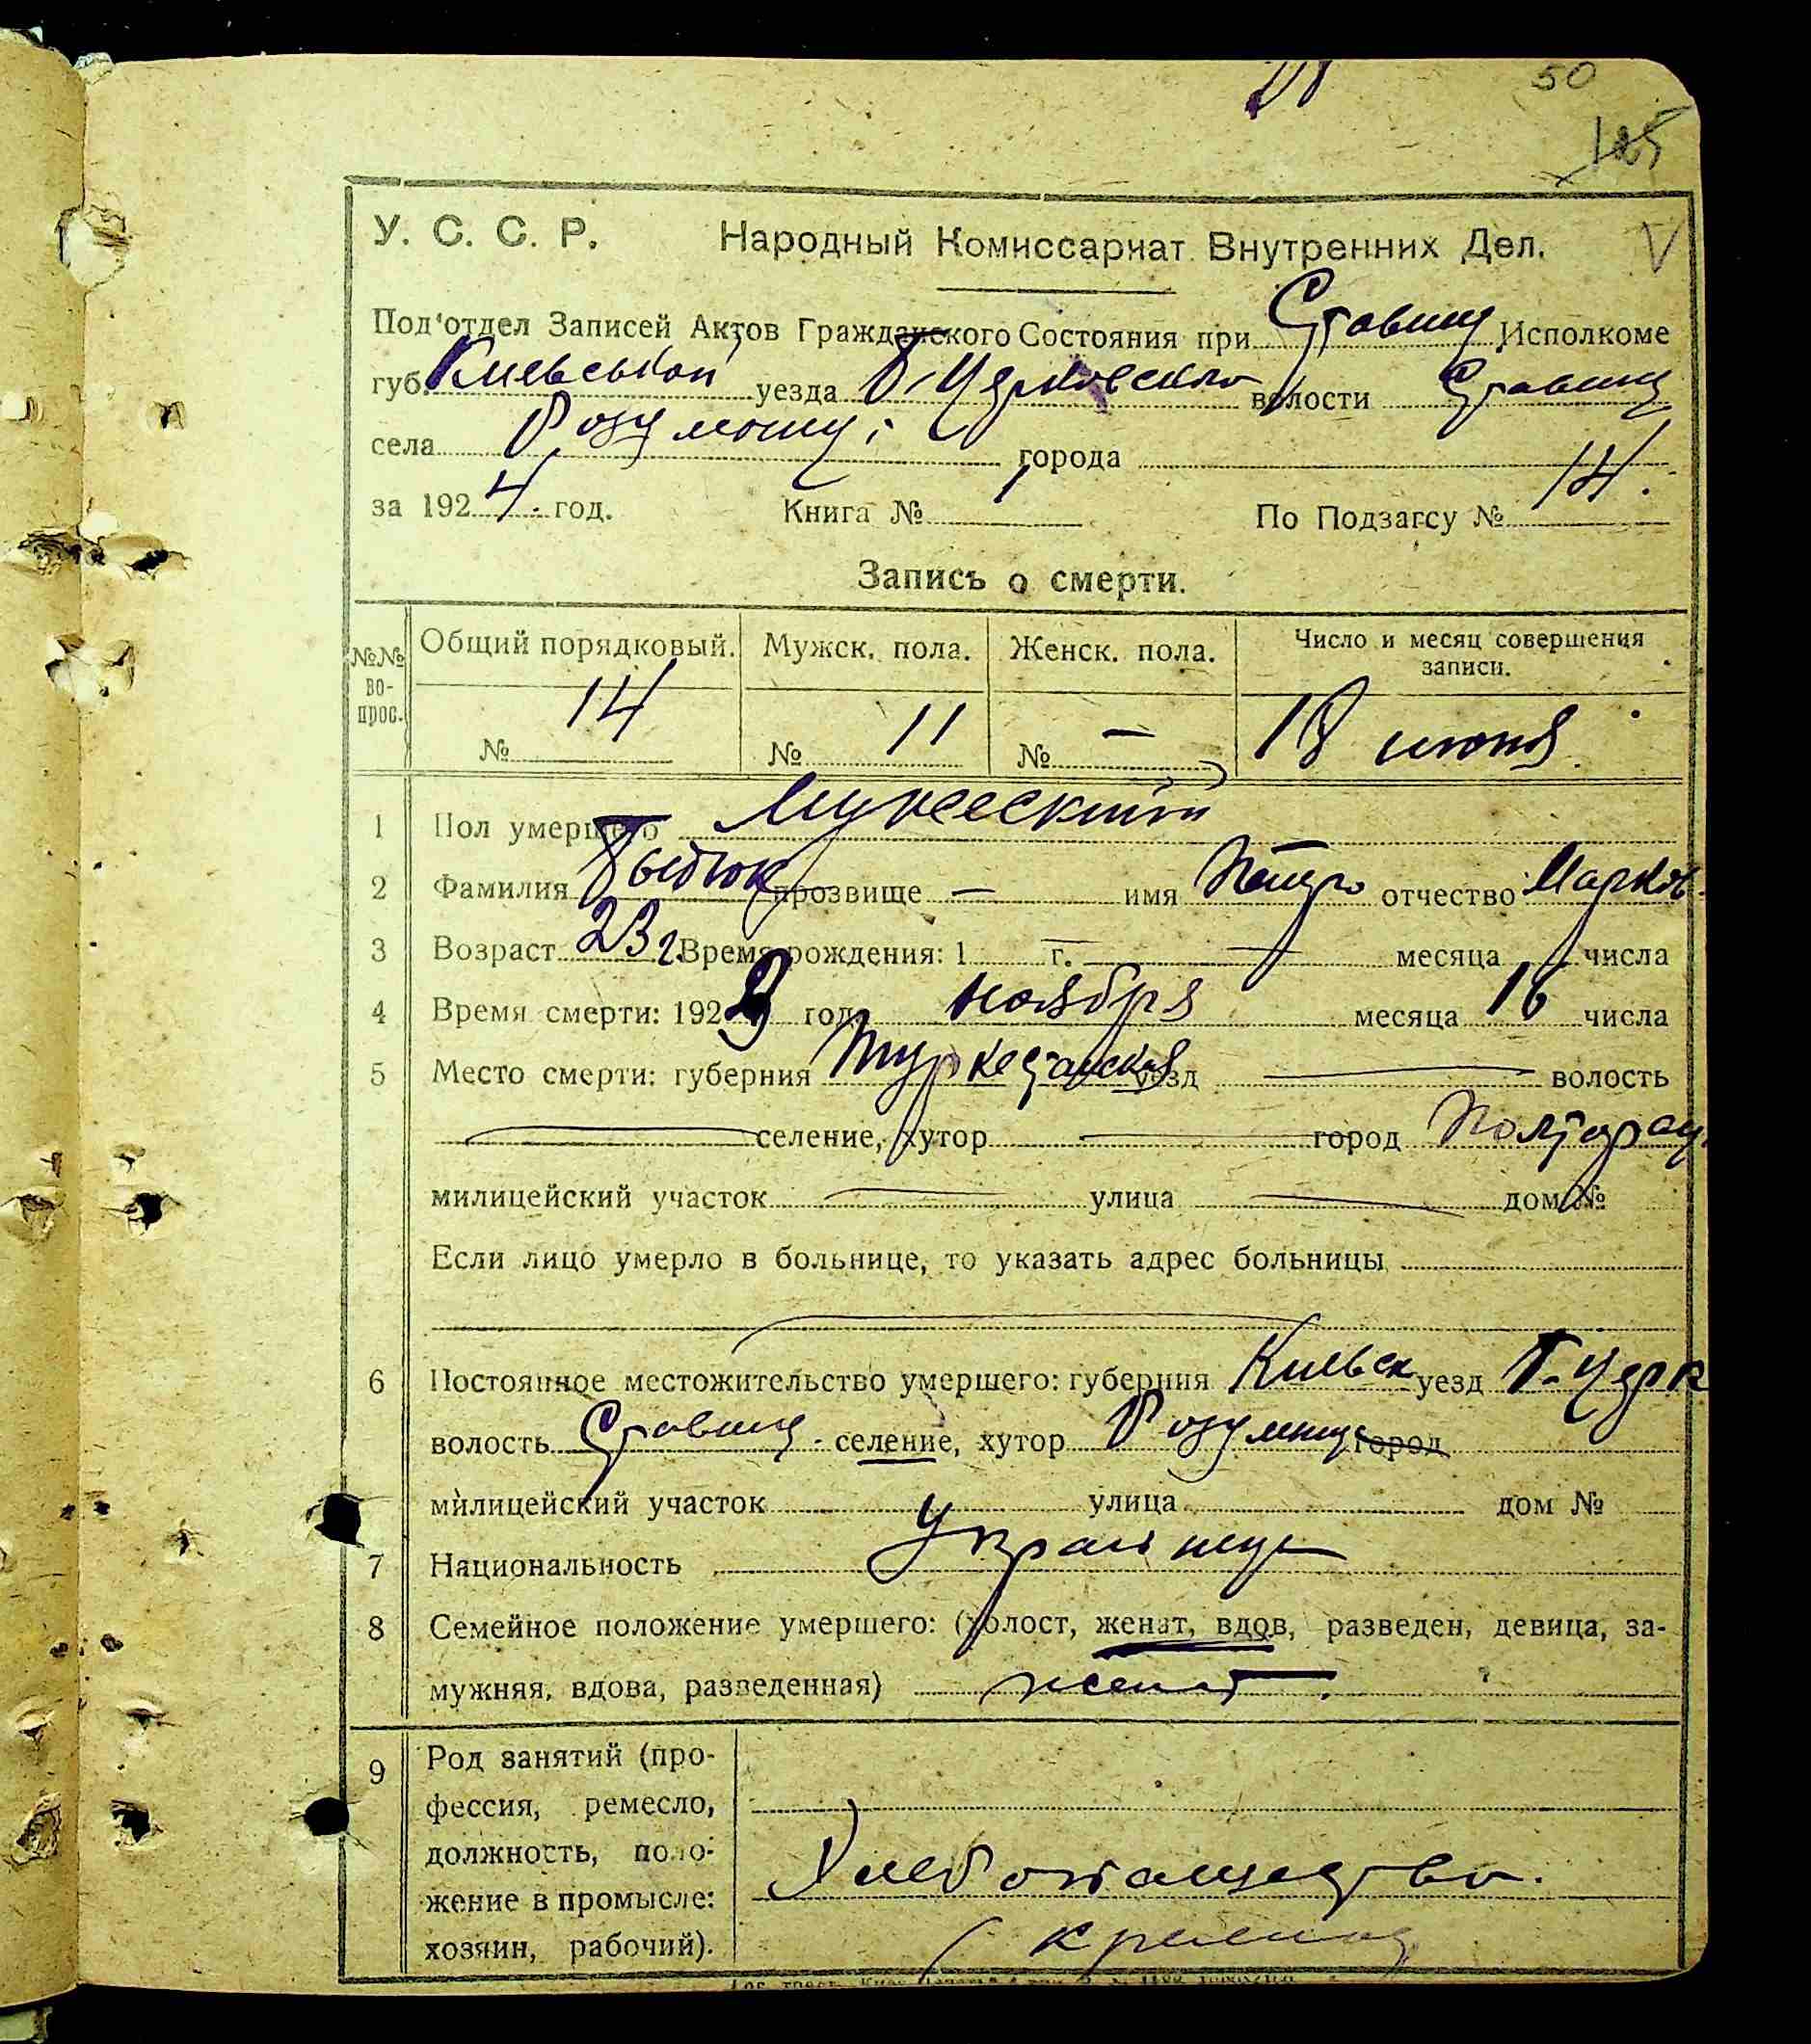 50
125
У. С. С. Р. Народный Комиссариат Внутренних Дел. V
Под'отдел Записей Актов Гражданского Состояния при Ставищ Исполкоме
губ. Киевськой уезда Б-Церковского волости Ставищ
села города
за 1924 год. Книга № 1 По Подзагсу № 14.
Запись о смерти.
№№ во-прос. Общий порядковый. Мужск. пола. Женск. пола. Число и месяц совершения записи.
№ 14 № 11 № — 18 июня
1 Пол умершего мужеский
2 Фамилия прозвище — имя Петро отчество Марков.
3 Возраст 23 г. Время рождения: 1 — г. — месяца числа
4 Время смерти: 192 год. ноября месяца 16 числа
5 Место смерти: губерния Туркестанская уезд — волость
— селение, хутор — город Полторац
милицейский участок — улица — дом №
Если лицо умерло в больнице, то указать адрес больницы
6 Постоянное местожительство умершего: губерния Киевск уезд Б-Церк
волость Ставищ. селение, хутор город
милицейский участок улица дом №
7 Национальность
8 Семейное положение умершего: (холост, женат, вдов, разведен, девица, за-
мужняя, вдова, разведенная) женат.
9 Род занятий (про-
фессия, ремесло,
должность, поло-
жение в промысле:
хозяин, рабочий).
Хлебопашество.